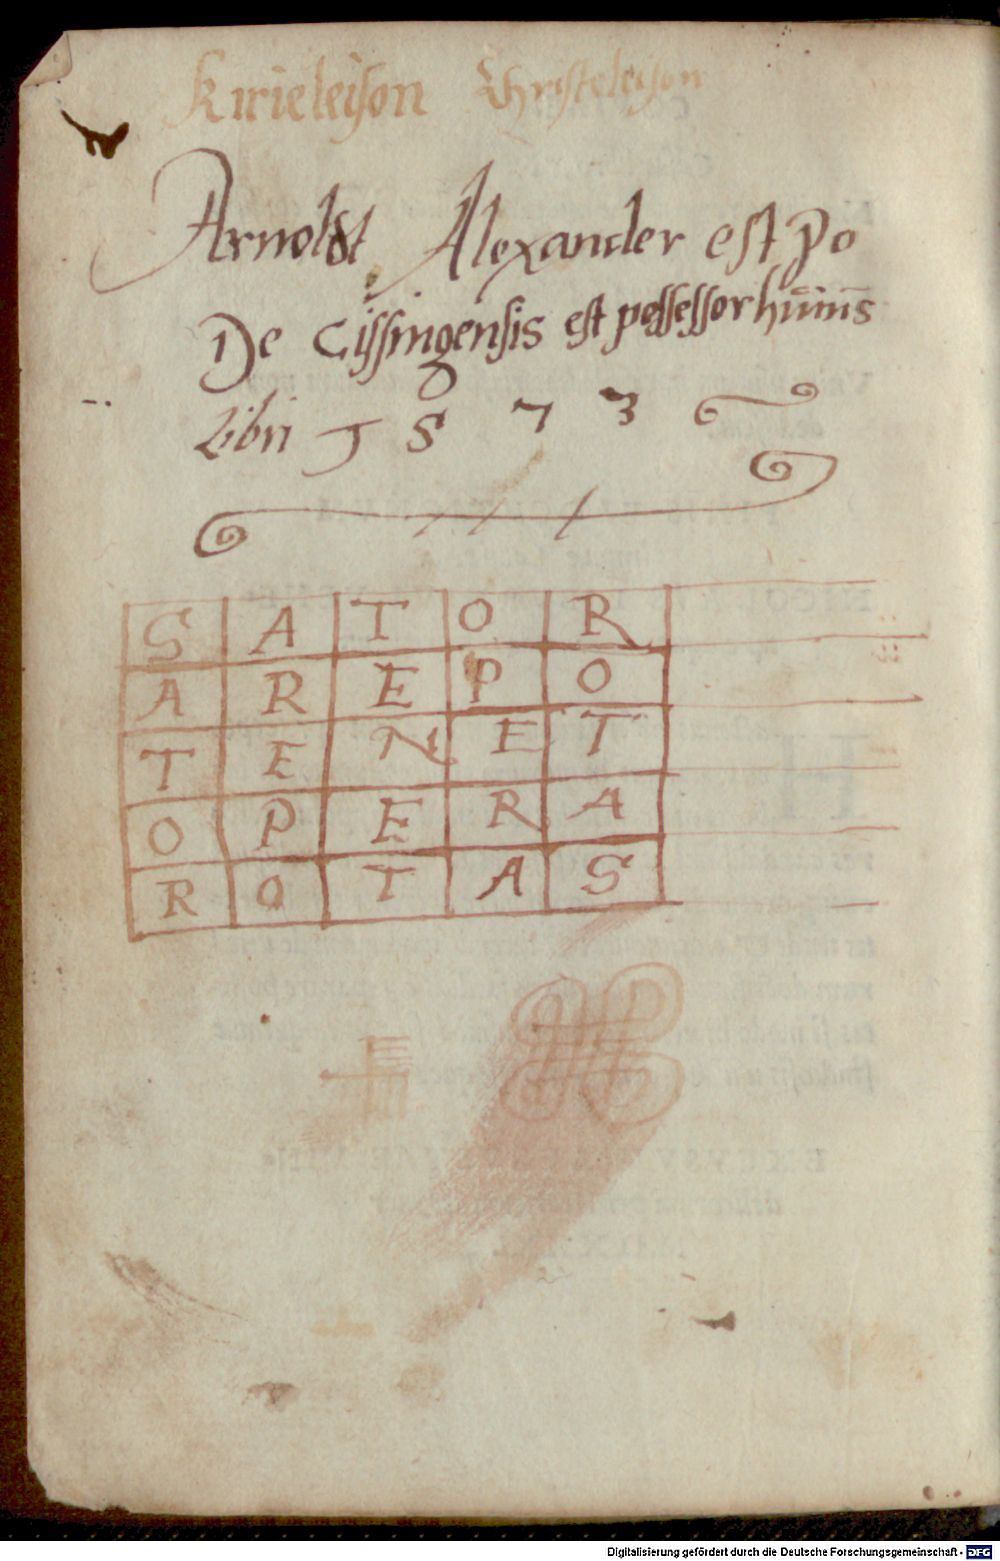 Kirieleison Christeleison
Arnoldt Alexander est po
De Cissingensis est possessor hui⁹
libri 1573
S A T O R
A R E P O
T E N E T
O P E R A
R O T A S
Digitalisierung gefördert durch die Deutsche Forschungsgemeinschaft - DFG